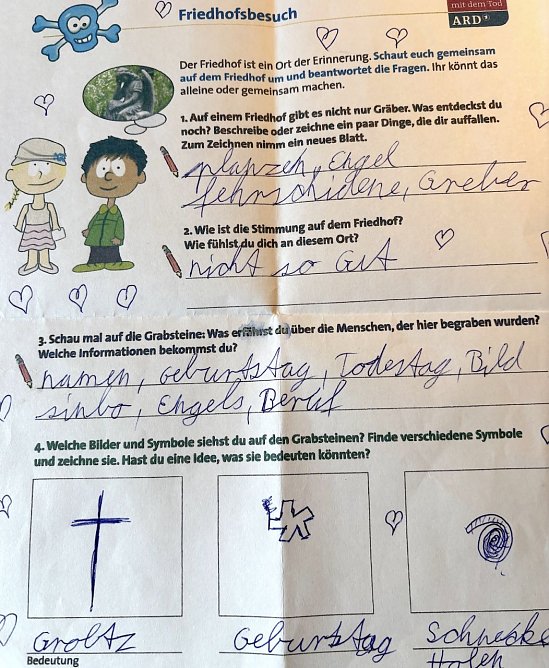 Friedhofsbesuch
mit dem Tod
ARD
Der Friedhof ist ein Ort der Erinnerung. Schaut euch gemeinsam
auf dem Friedhof um und beantwortet die Fragen. Ihr könnt das
alleine oder gemeinsam machen.
1. Auf einem Friedhof gibt es nicht nur Gräber. Was entdeckst du
noch? Beschreibe oder zeichne ein paar Dinge, die dir auffallen.
Zum Zeichnen nimm ein neues Blatt.
planzen, Engel
fehrschidene, Greber
2. Wie ist die Stimmung auf dem Friedhof?
Wie fühlst du dich an diesem Ort?
nicht so Gut
3. Schau mal auf die Grabsteine: Was erfährst du über die Menschen, der hier begraben wurden?
Welche Informationen bekommst du?
namen, Geburtstag, Todestag, Bild
sinbo, Engels, Beruf
4. Welche Bilder und Symbole siehst du auf den Grabsteinen? Finde verschiedene Symbole
und zeichne sie. Hast du eine Idee, was sie bedeuten könnten?
Geburtstag
Bedeutung